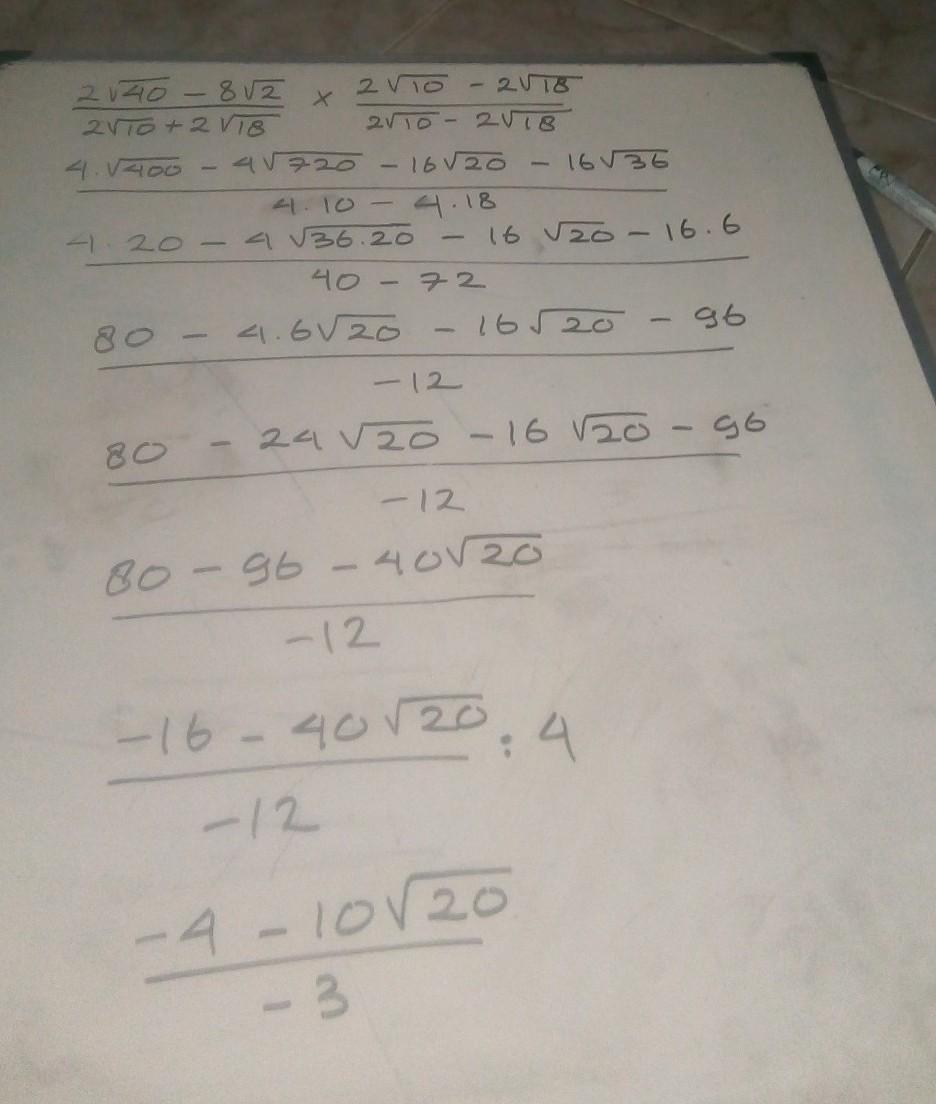 (2√40 - 8√2)/(2√10 + 2√18) × (2√10 - 2√18)/(2√10 - 2√18)
(4.√400 - 4√720 - 16√20 - 16√36)/(4.10 - 4.18)
(4.20 - 4√36.20 - 16√20 - 16.6)/(40 - 72)
(80 - 4.6√20 - 16√20 - 96)/(-12)
(80 - 24√20 - 16√20 - 96)/(-12)
(80 - 96 - 40√20)/(-12)
(-16 - 40√20)/(-12) : 4
(-4 - 10√20)/(-3)